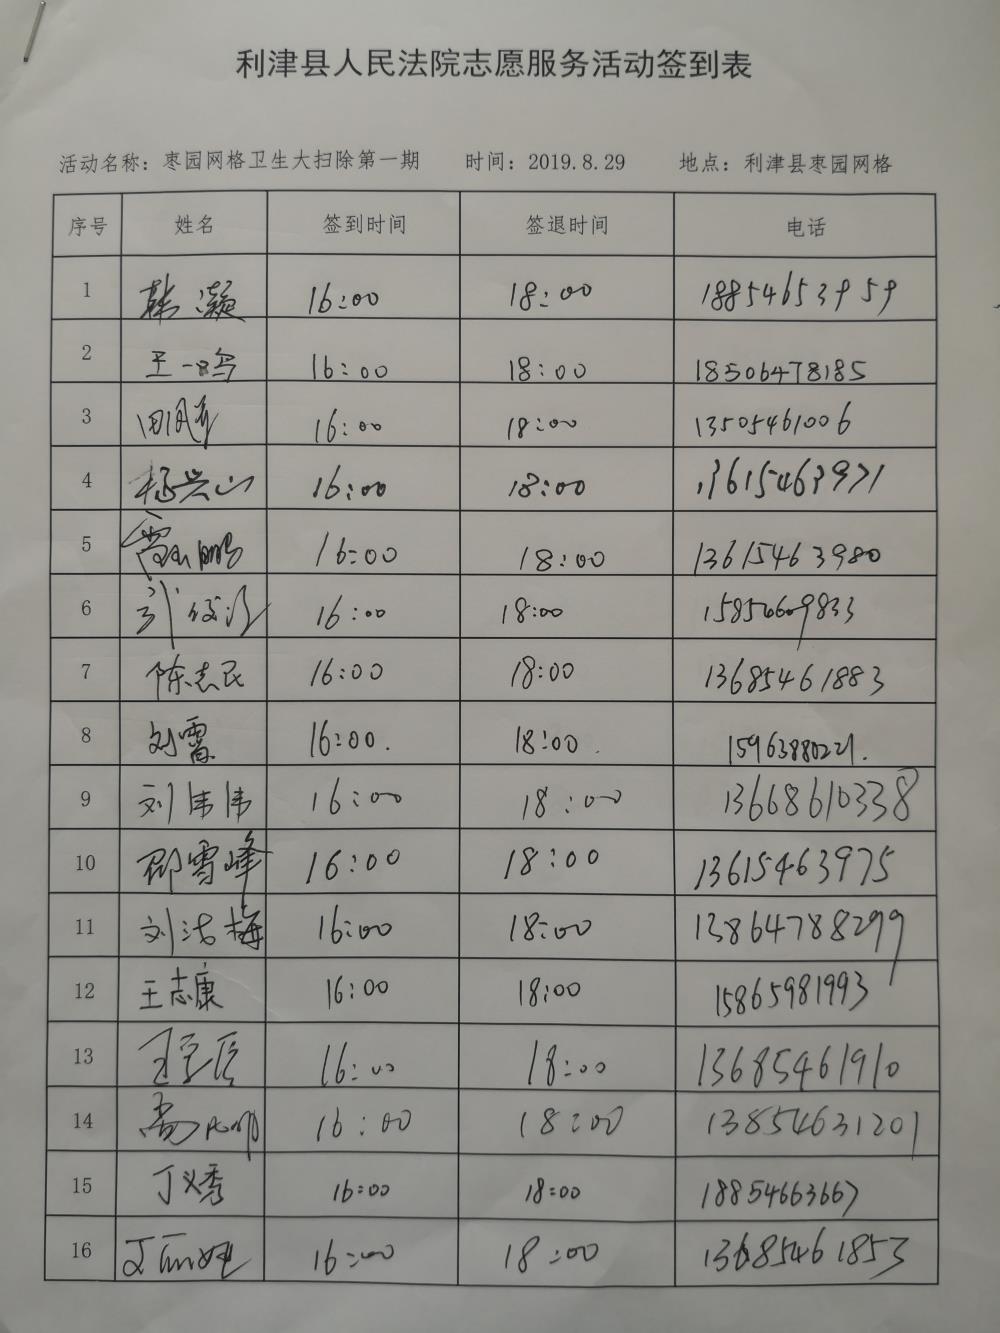 利津县人民法院志愿服务活动签到表
活动名称：枣园网格卫生大扫除第一期 时间：2019.8.29 地点：利津县枣园网格
序号 姓名 签到时间 签退时间 电话
1 韩灏 16:00 18:00 18854653959
2 王一鸣 16:00 18:00 18506478185
3 16:00 18:00 13505461006
4 杨兴山 16:00 18:00 13615463971
5 16:00 18:00 13615463980
6 16:00 18:00 15854609833
7 陈志民 16:00 18:00 13685461883
8 刘霄 16:00. 18:00. 15963880221.
9 刘伟伟 16:00 18:00 13668610338
10 邵雪峰 16:00 18:00 13615463975
11 刘洁梅 16:00 18:00 13864788299
12 王志康 16:00 18:00 15865981993
13 16:00 18:00 13685461910
14 16:00 18:00 13854631201
15 丁义秀 16:00 18:00 18854663667
16 16:00 18:00 13685461853